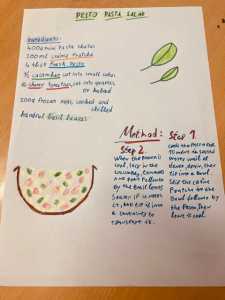 PESTO PASTA SALAD
Ingredients:
400g mini pasta shapes
200ml crème fraîche
4 tbsp fresh pesto
½ cucumber, cut into small cubes
cherry tomatoes, cut into quarters,
or halved
200g frozen peas, cooked and
chilled
handful basil leaves
Method: Step 1.
Cook the pasta for
10 mins in
water until al
dente, drain, then
tip into a bowl.
Stir the crème
fraîche to the
bowl followed by
the pesto, then
leave to cool.
Step 2.
When the pasta is
cool, stir in the
cucumber, tomatoes
and peas followed
by the basil leaves
it, tip it into
a container to
transport it.